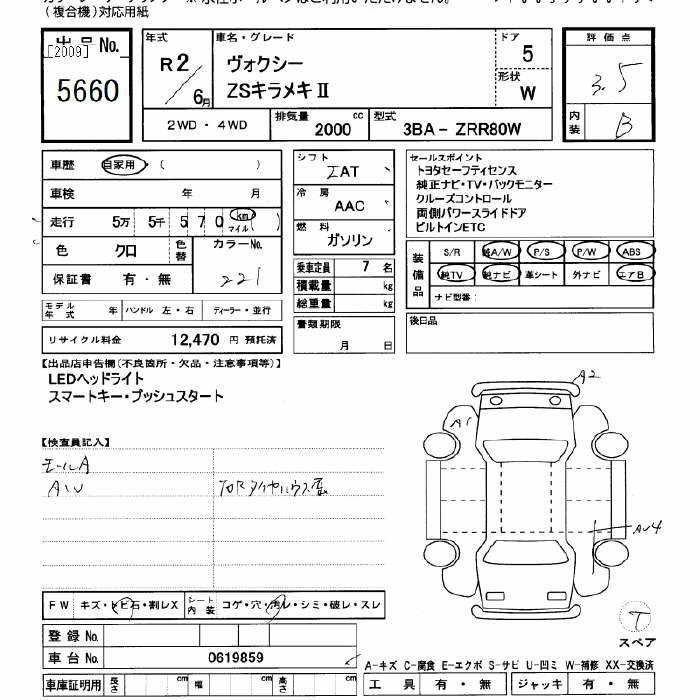 (複合機)対応用紙
出品 No.
[2009]
5660
年式
R2/6月
車名・グレード
ヴォクシー
ZSキラメキⅡ
ドア
5
形状
W
評価点
3.5
内装
B
2WD・4WD
排気量
2000 cc
型式
3BA - ZRR80W
車歴 自家用・( )
車検 年 月
走行 5万 5千 5 7 0 km マイル ( )
色 クロ 色替 カラーNo. 221
保証書 有・無
モデル年式 年 ハンドル 左・右 ディーラー・並行
リサイクル料金 12,470 円 預託済
シフト
IAT
冷房
AAC
燃料
ガソリン
乗車定員 7 名
積載量 kg
総重量 kg
書類期限
月 日
セールスポイント
トヨタセーフティセンス
純正ナビ・TV・バックモニター
クルーズコントロール
両側パワースライドドア
ビルトインETC
装備品
S/R 純A/W P/S P/W ABS
純TV 純ナビ 革シート 外ナビ エアB
ナビ型番:
後日品
【出品店申告欄(不良箇所・欠品・注意事項等)】
LEDヘッドライト
スマートキー・プッシュスタート
【検査員記入】
モールA
AU
A2
A1
AU4
T
スペア
FW キズ・トビ石・割レX シート内装 コゲ・穴・汚レ・シミ・破レ・スレ
登録 No.
車台 No. 0619859
車庫証明用 長さ cm 幅 cm 高さ cm
A-キズ C-腐食 E-エクボ S-サビ U-凹ミ W-補修 XX-交換済
工具 有・無 ジャッキ 有・無